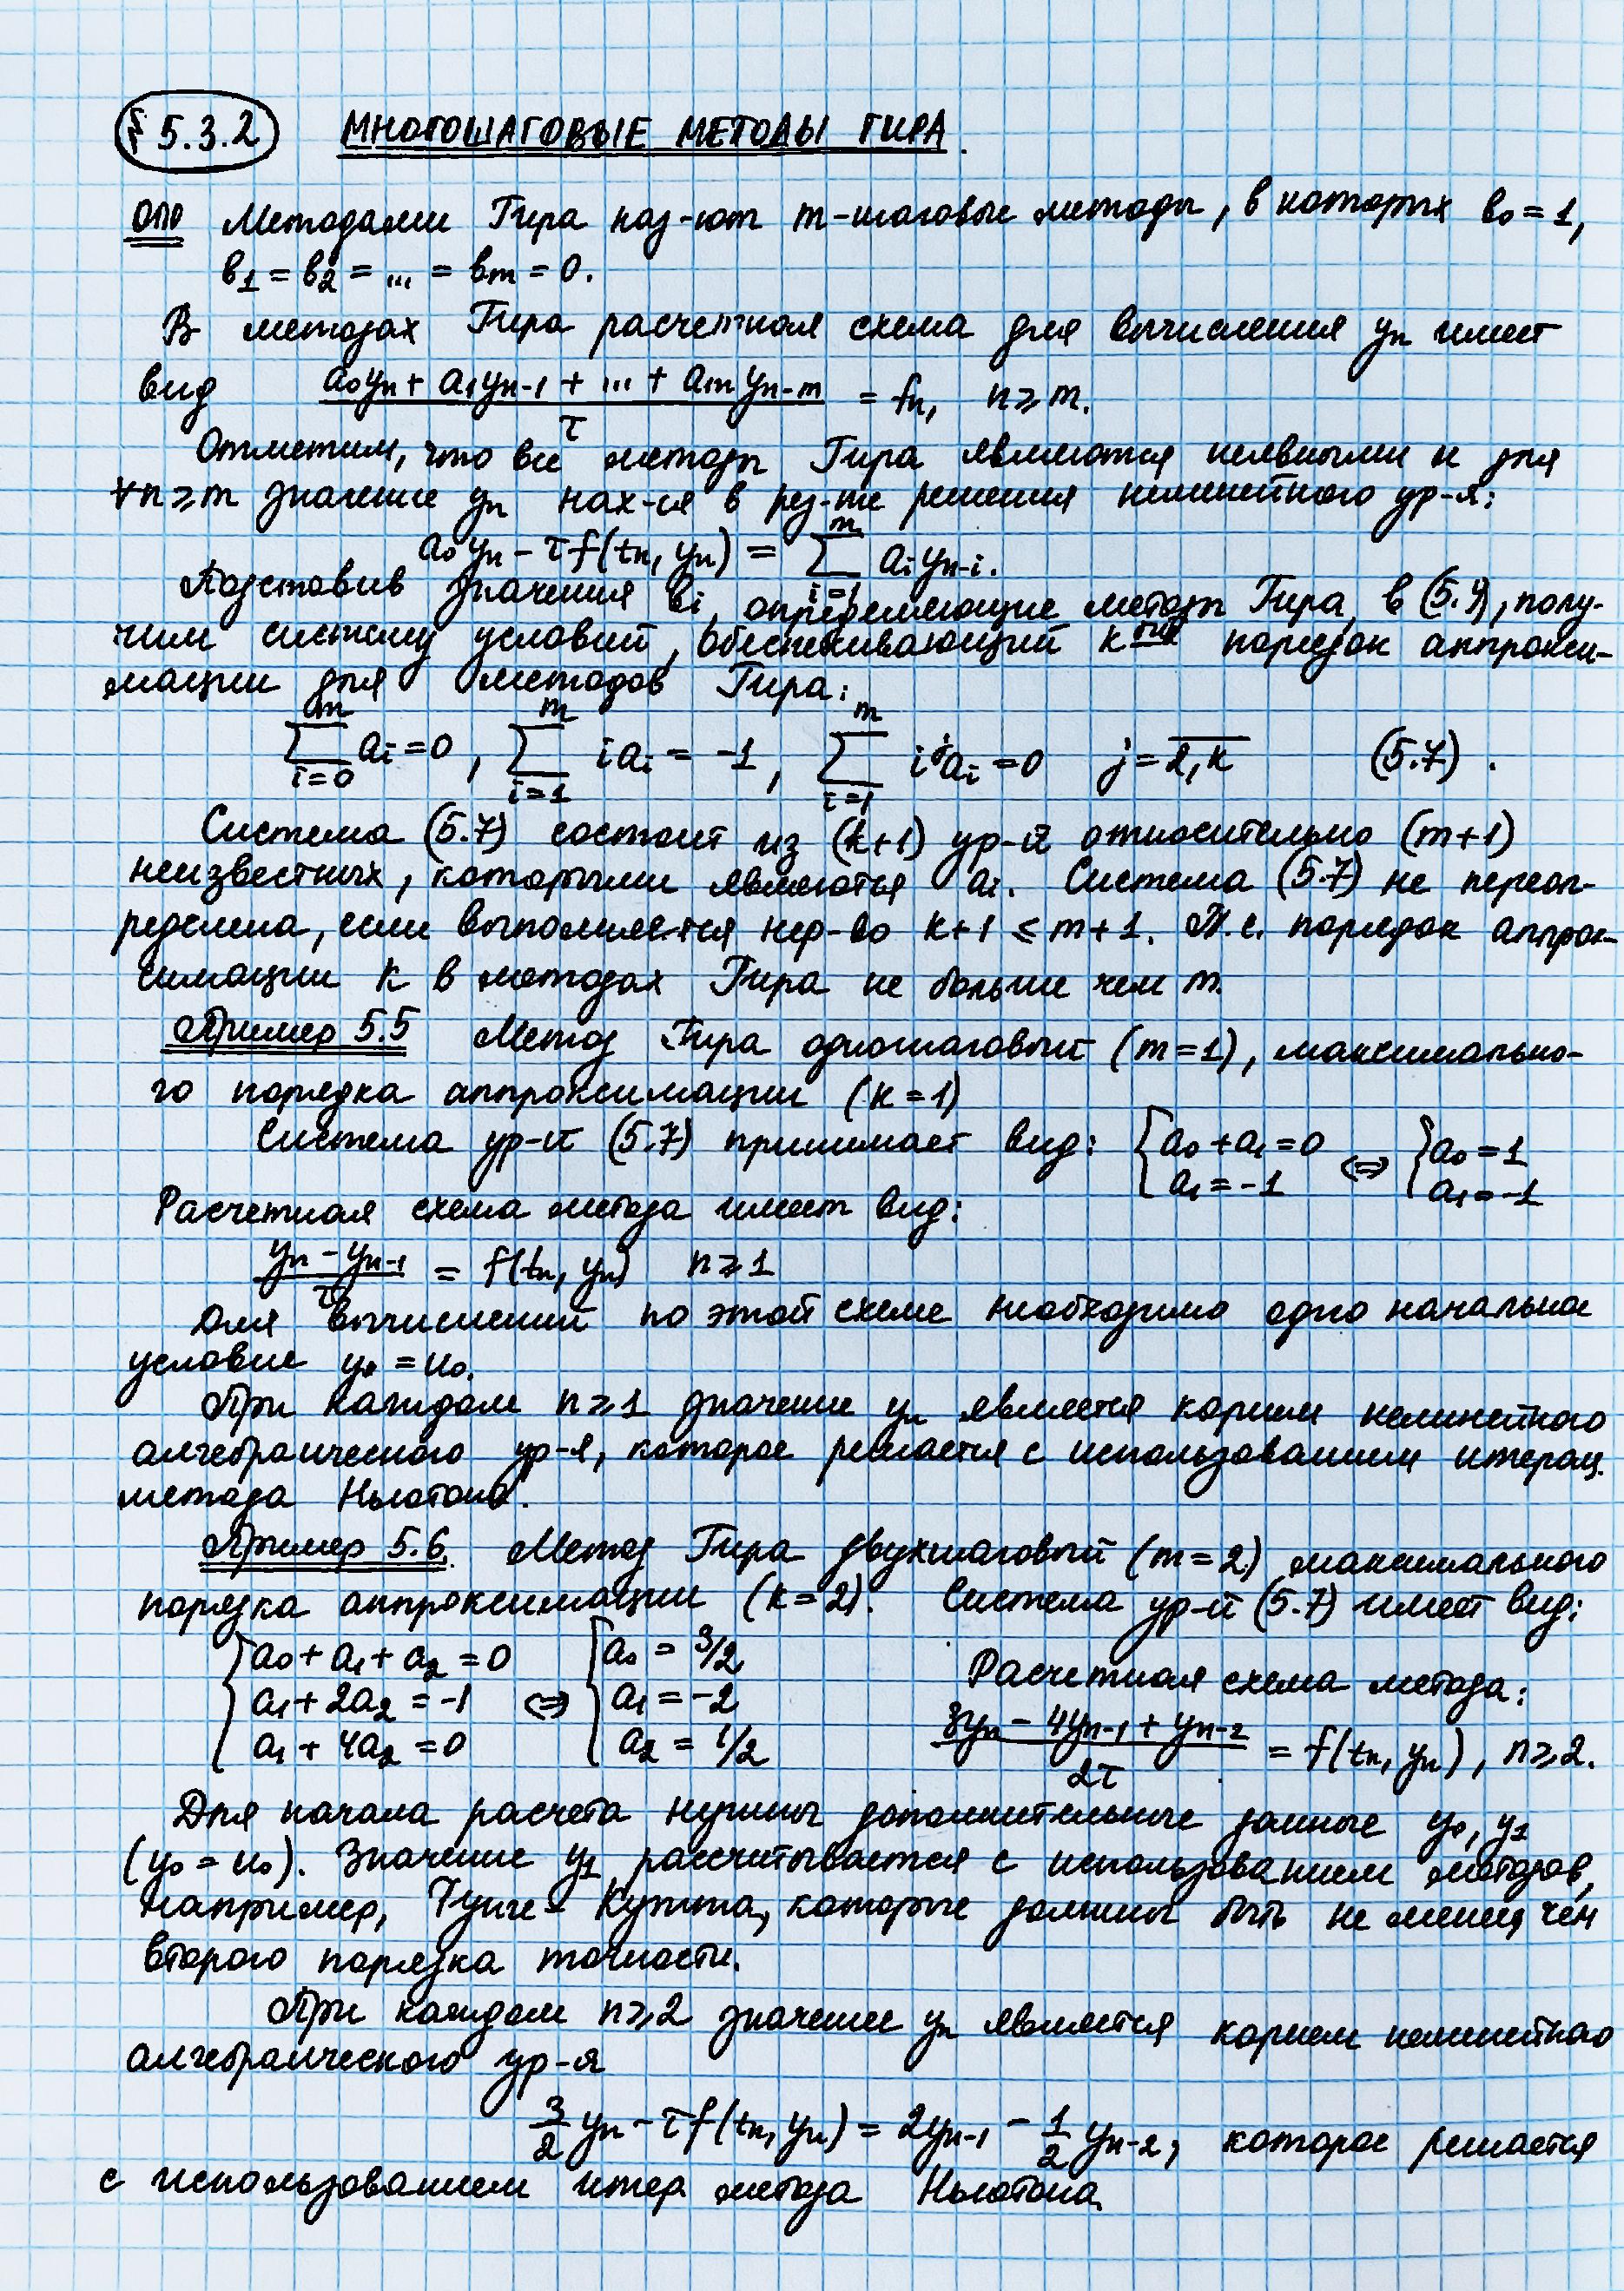 § 5.3.2 МНОГОШАГОВЫЕ МЕТОДЫ ГИРА.
ОПР Методами Гира наз-ют m-шаговые методы, в которых b₀ = 1,
b₁ = b₂ = ... = bₘ = 0.
В методах Гира расчетная схема для вычисления yₙ имеет
вид (a₀yₙ + a₁yₙ₋₁ + ... + aₘyₙ₋ₘ)/τ = fₙ, n ≥ m.
Отметим, что все методы Гира являются неявными и для
∀n ≥ m значение yₙ нах-ся в рез-те решения нелинейного ур-я:
a₀yₙ − τf(tₙ, yₙ) = ∑_{i=1}^{m} aᵢyₙ₋ᵢ.
Подставив значения bᵢ, определяющие методы Гира, в (5.4), полу-
чим систему условий, обеспечивающий k-ый порядок аппрокси-
мации для методов Гира:
∑_{i=0}^{m} aᵢ = 0, ∑_{i=1}^{m} iaᵢ = −1, ∑_{i=1}^{m} iʲaᵢ = 0 j = \overline{2, k} (5.7).
Система (5.7) состоит из (k+1) ур-й относительно (m+1)
неизвестных, которыми являются aᵢ. Система (5.7) не переоп-
ределена, если выполняется нер-во k+1 ≤ m+1. Т.е. порядок аппрок-
симации k в методах Гира не больше чем m.
Пример 5.5 Метод Гира одношаговый (m=1), максимально-
го порядка аппроксимации (k=1)
Система ур-й (5.7) принимает вид: { a₀ + a₁ = 0 ; a₁ = −1 ⇔ { a₀ = 1 ; a₁ = −1
Расчетная схема метода имеет вид:
(yₙ − yₙ₋₁)/τ = f(tₙ, yₙ) n ≥ 1
Для вычислений по этой схеме необходимо одно начальное
условие y₀ = u₀.
При каждом n ≥ 1 значение yₙ является корнем нелинейного
алгебраического ур-я, которое решается с использованием итерац.
метода Ньютона.
Пример 5.6. Метод Гира двухшаговый (m=2) максимального
порядка аппроксимации (k=2). Система ур-й (5.7) имеет вид:
{ a₀ + a₁ + a₂ = 0 ; a₁ + 2a₂ = −1 ; a₁ + 4a₂ = 0 ⇔ { a₀ = 3/2 ; a₁ = −2 ; a₂ = 1/2
Расчетная схема метода:
(3yₙ − 4yₙ₋₁ + yₙ₋₂)/2τ = f(tₙ, yₙ), n ≥ 2.
Для начала расчета нужны дополнительные данные y₀, y₁
(y₀ = u₀). Значение y₁ рассчитывается с использованием методов,
например, Рунге - Кутта, которые должны быть не менее, чем
второго порядка точности.
При каждом n ≥ 2 значение yₙ является корнем нелинейного
алгебраического ур-я
3/2 yₙ − τf(tₙ, yₙ) = 2yₙ₋₁ − 1/2 yₙ₋₂, которое решается
с использованием итер. метода Ньютона.